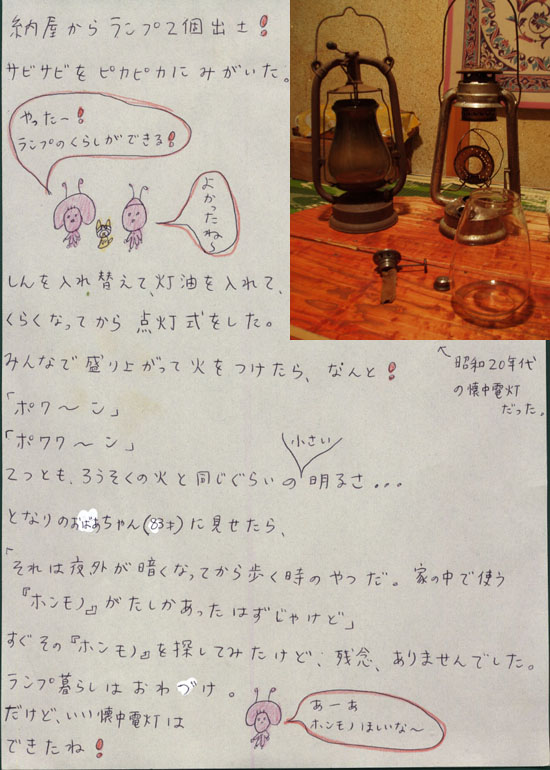 納屋からランプ2個出土!
サビサビをピカピカにみがいた。
やったー!
ランプのくらしができる!
よかったね〜
しんを入れ替えて、灯油を入れて、
くらくなってから点灯式をした。
みんなで盛り上がって火をつけたら、なんと!
←昭和20年代
の懐中電灯
だった。
「ポワ〜ン」
「ポワワ〜ン」
2つとも、ろうそくの火と同じぐらいの小さい明るさ...
となりのおばあちゃん(83才)に見せたら、
「それは夜外が暗くなってから歩く時のやつだ。家の中で使う
『ホンモノ』がたしかあったはずじゃけど」
すぐその『ホンモノ』を探してみたけど、残念、ありませんでした。
ランプ暮らしはおわづけ。
だけど、いい懐中電灯は
できたね!
あーあ
ホンモノほしいな〜